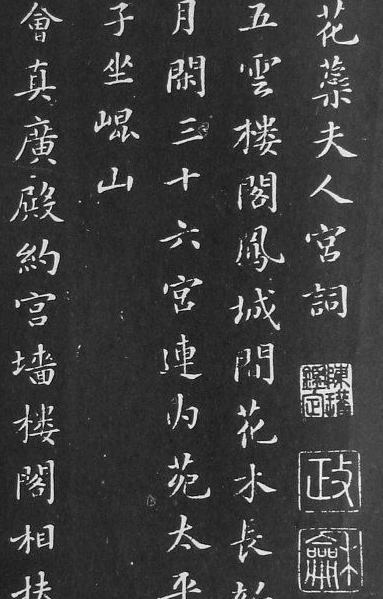 花蘂夫人宮詞
政
龢
五雲楼閣鳳城間花木長
月閑三十六宮連内苑太平
子坐崐山
會真廣殿約宮墻楼閣相